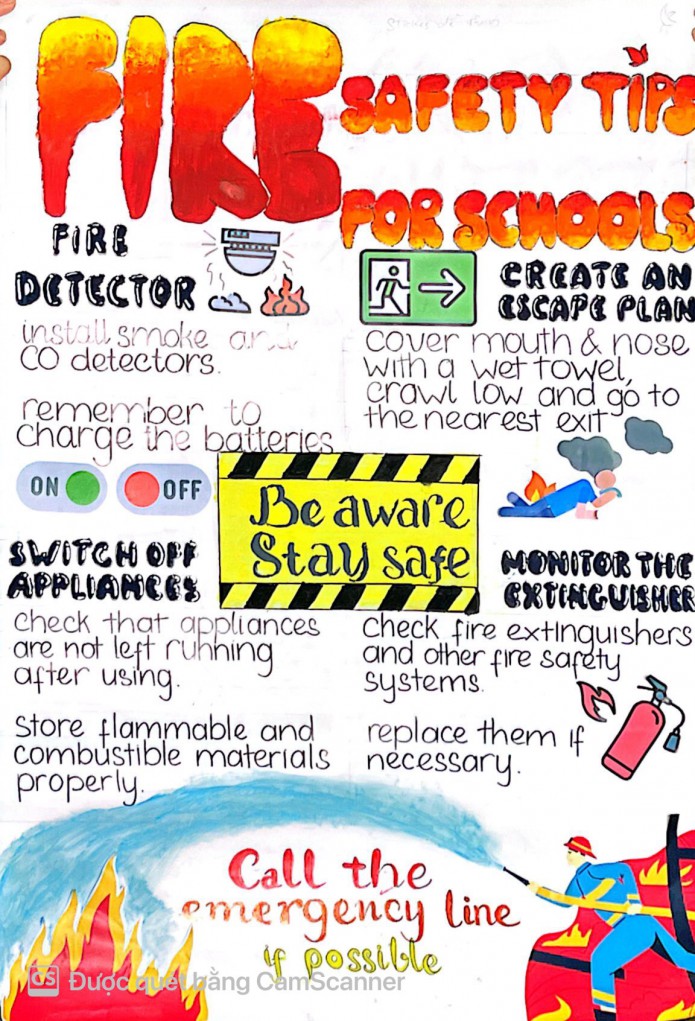 FIRE
SAFETY TIPS
FOR SCHOOLS
FIRE
DETECTOR
install smoke and
CO detectors.
remember to
charge the batteries
CREATE AN
ESCAPE PLAN
cover mouth & nose
with a wet towel,
crawl low and go to
the nearest exit
ON
OFF
Be aware
Stay safe
SWITCH OFF
APPLIANCES
check that appliances
are not left running
after using.
store flammable and
combustible materials
properly.
MONITOR THE
EXTINGUISHER
check fire extinguishers
and other fire safety
systems.
replace them if
necessary.
Call the
emergency line
if possible
CS Được quét bằng CamScanner